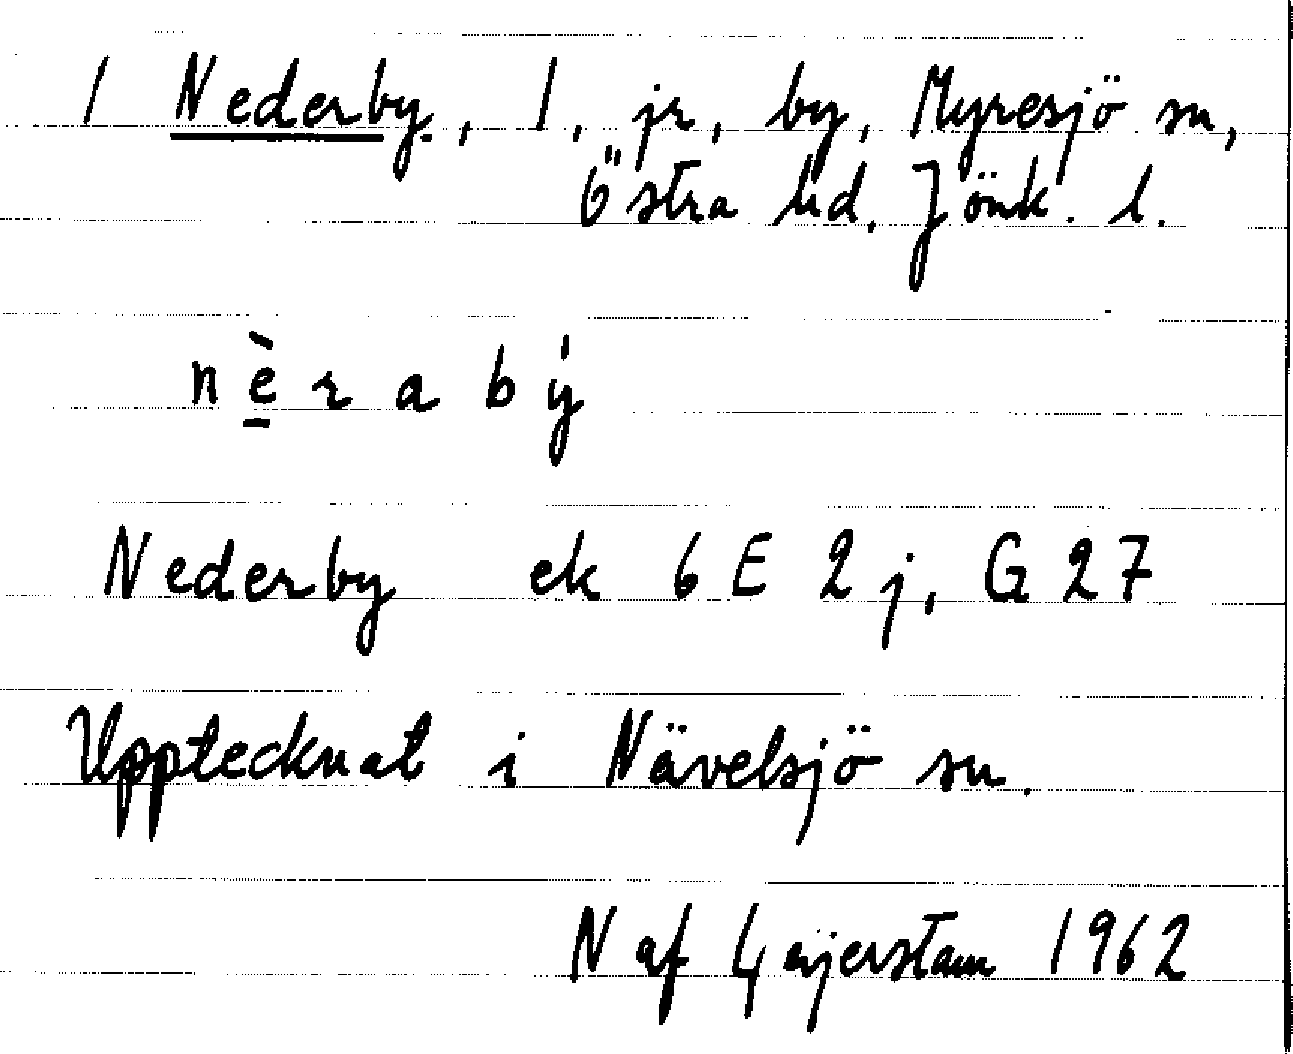 1 Nederby, 1, jr, by, Myresjö sn,
Östra hd, Jönk. l.
nè̱rabẏ
Nederby ek 6 E 2 j, G 27
Upptecknat i Nävelsjö sn.
N af Geijerstam 1962